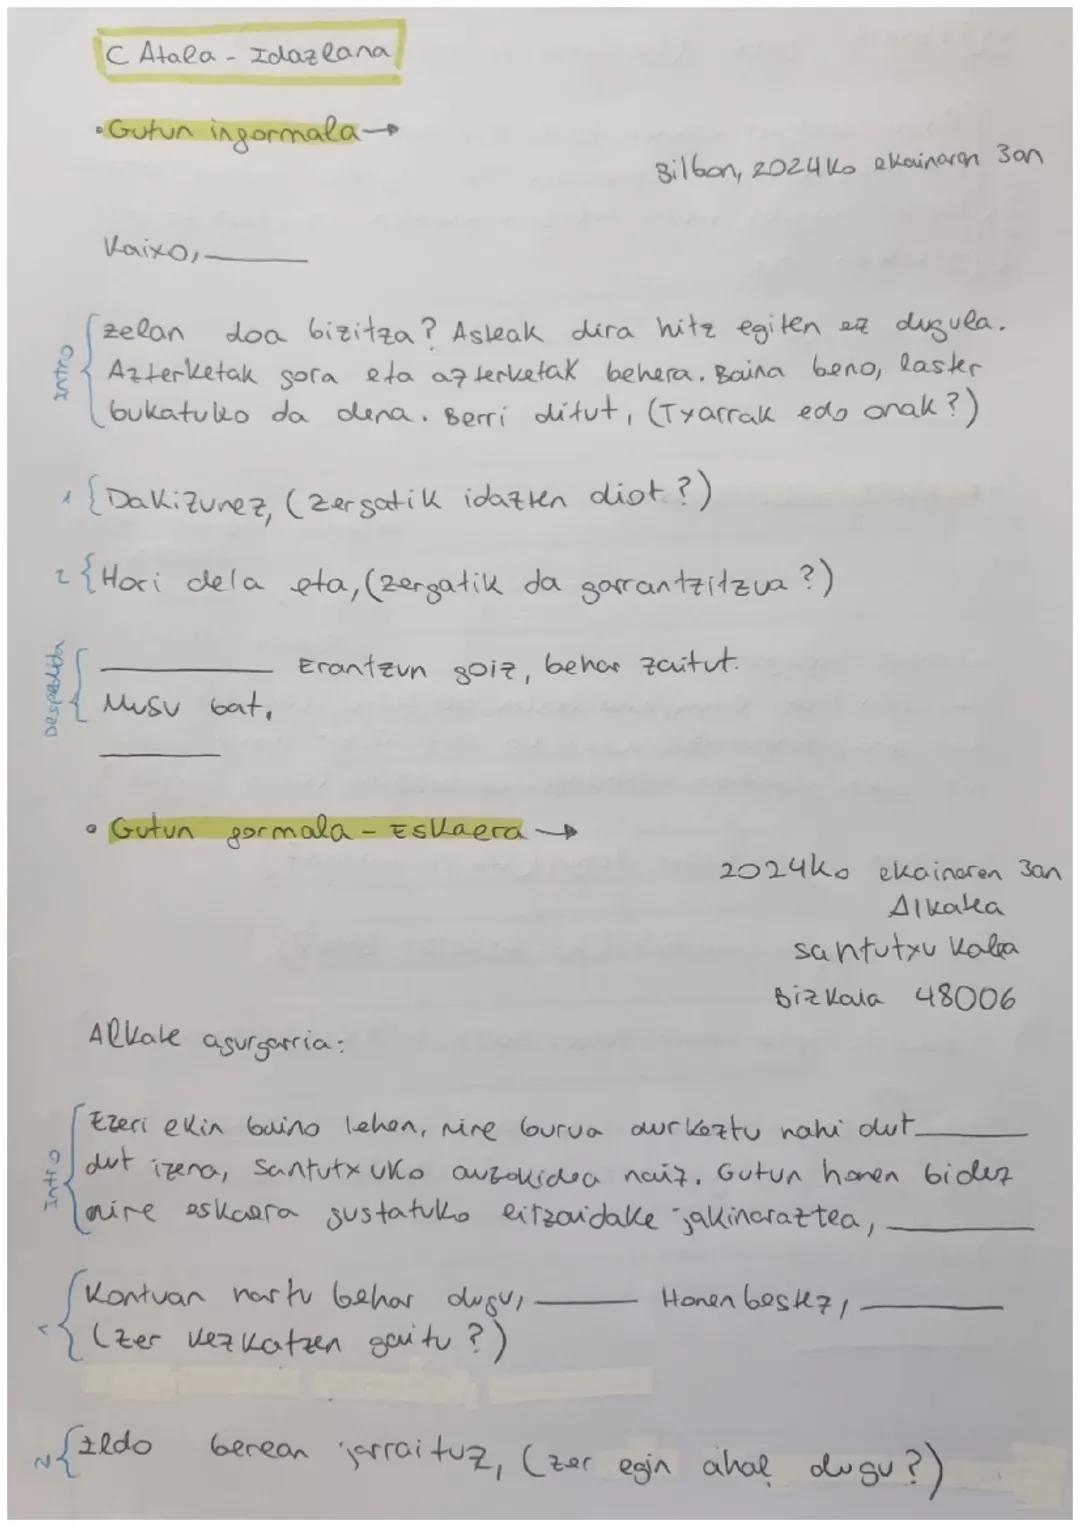 C Atala - Idazlana
• Gutun informala →
Bilbon, 2024ko ekainaren 3an
Kaixo, ______
Intro
zelan doa bizitza? Asteak dira hitz egiten ez dugula.
Azterketak gora eta azterketak behera. Baina beno, laster
bukatuko da dena. Berri ditut, (Txarrak edo onak?)
1 { Dakizunez, (zergatik idazten diot?)
2 { Hori dela eta, (zergatik da garrantzitzua?)
Despedida
______ Erantzun goiz, behar zaitut.
Musu bat,
______
• Gutun formala - Eskaera →
2024ko ekainaren 3an
Alkatea
santutxu kalea
Bizkaia 48006
Alkate agurgarria:
Intro
Ezeri ekin baino lehen, nire burua aurkeztu nahi dut ______
dut izena, Santutxuko auzokidea naiz. Gutun honen bidez
nire eskaera sustatuko litzaidake jakinaraztea, ______
1 { Kontuan hartu behar dugu, ______ Honenbestez, ______
(zer kezkatzen gaitu?)
2 { Ildo berean jarraituz, (zer egin ahal dugu?)